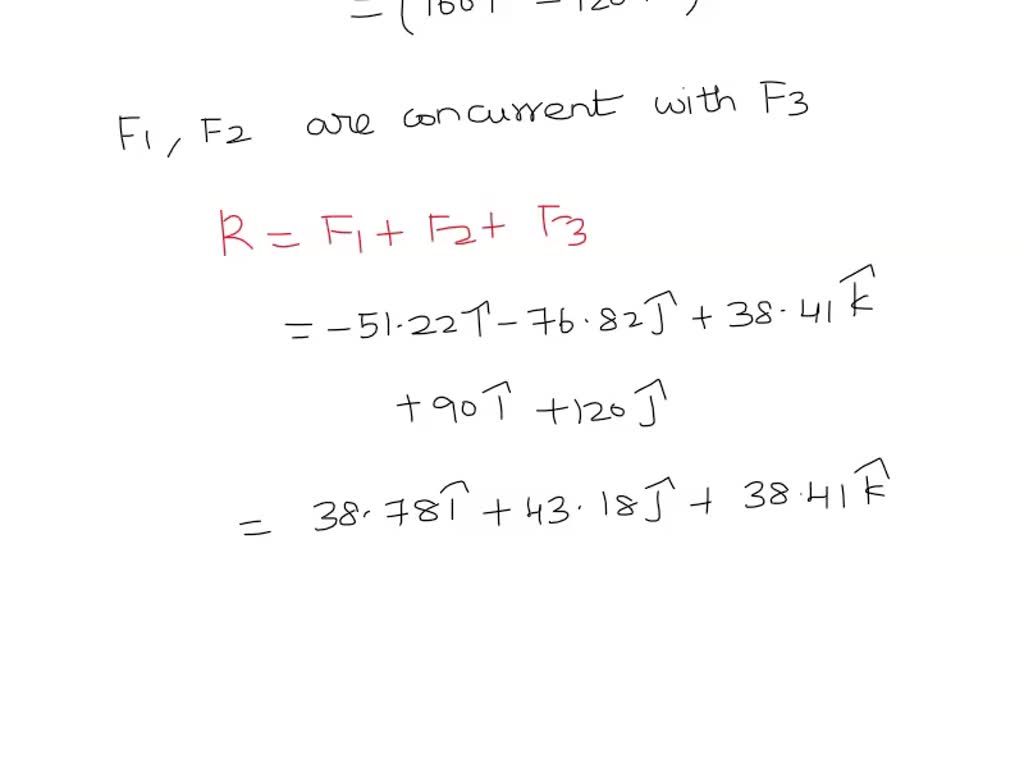 F1, F2 are concurrent with F3
R = F1 + F2 + F3
= -51.22 î - 76.82 ĵ + 38.41 k̂
+ 90 î + 120 ĵ
= 38.78 î + 43.18 ĵ + 38.41 k̂